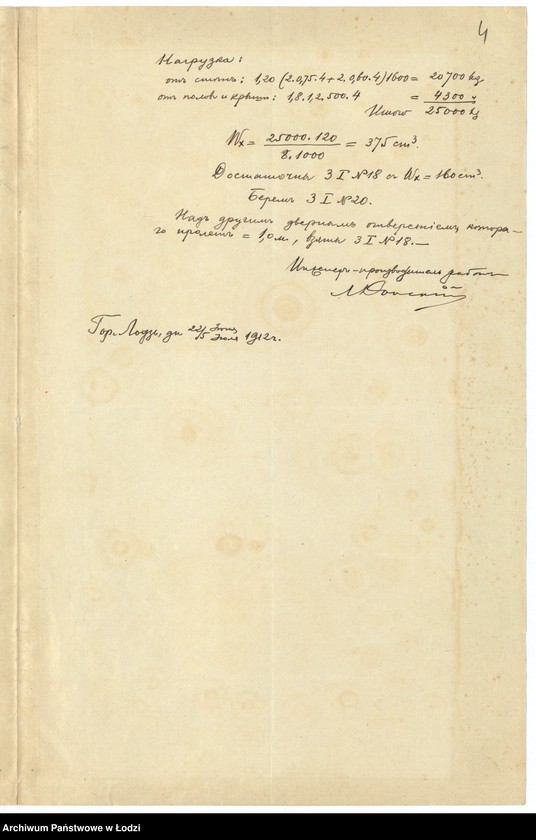 4
Нагрузка:
отъ стѣнъ: 1,20 (2.0,75.4+2.0,60.4)1600 = 20700 kg
отъ половъ и крыши: 1,8.1,2.500.4 = 4300 "
Итого 25000 kg
Wx = 25000.120 / 8.1000 = 375 cm³.
Достаточны 3 I №18 съ Wx = 160 cm³.
Беремъ 3 I №20.
Надъ другимъ двернымъ отверстіемъ, котора-
го пролетъ = 1,0 м., взяты 3 I №18. —
Инженеръ-производитель работъ
Гор. Лодзь, дн 22/5 Іюня/Іюля 1912 г.
Archiwum Państwowe w Łodzi